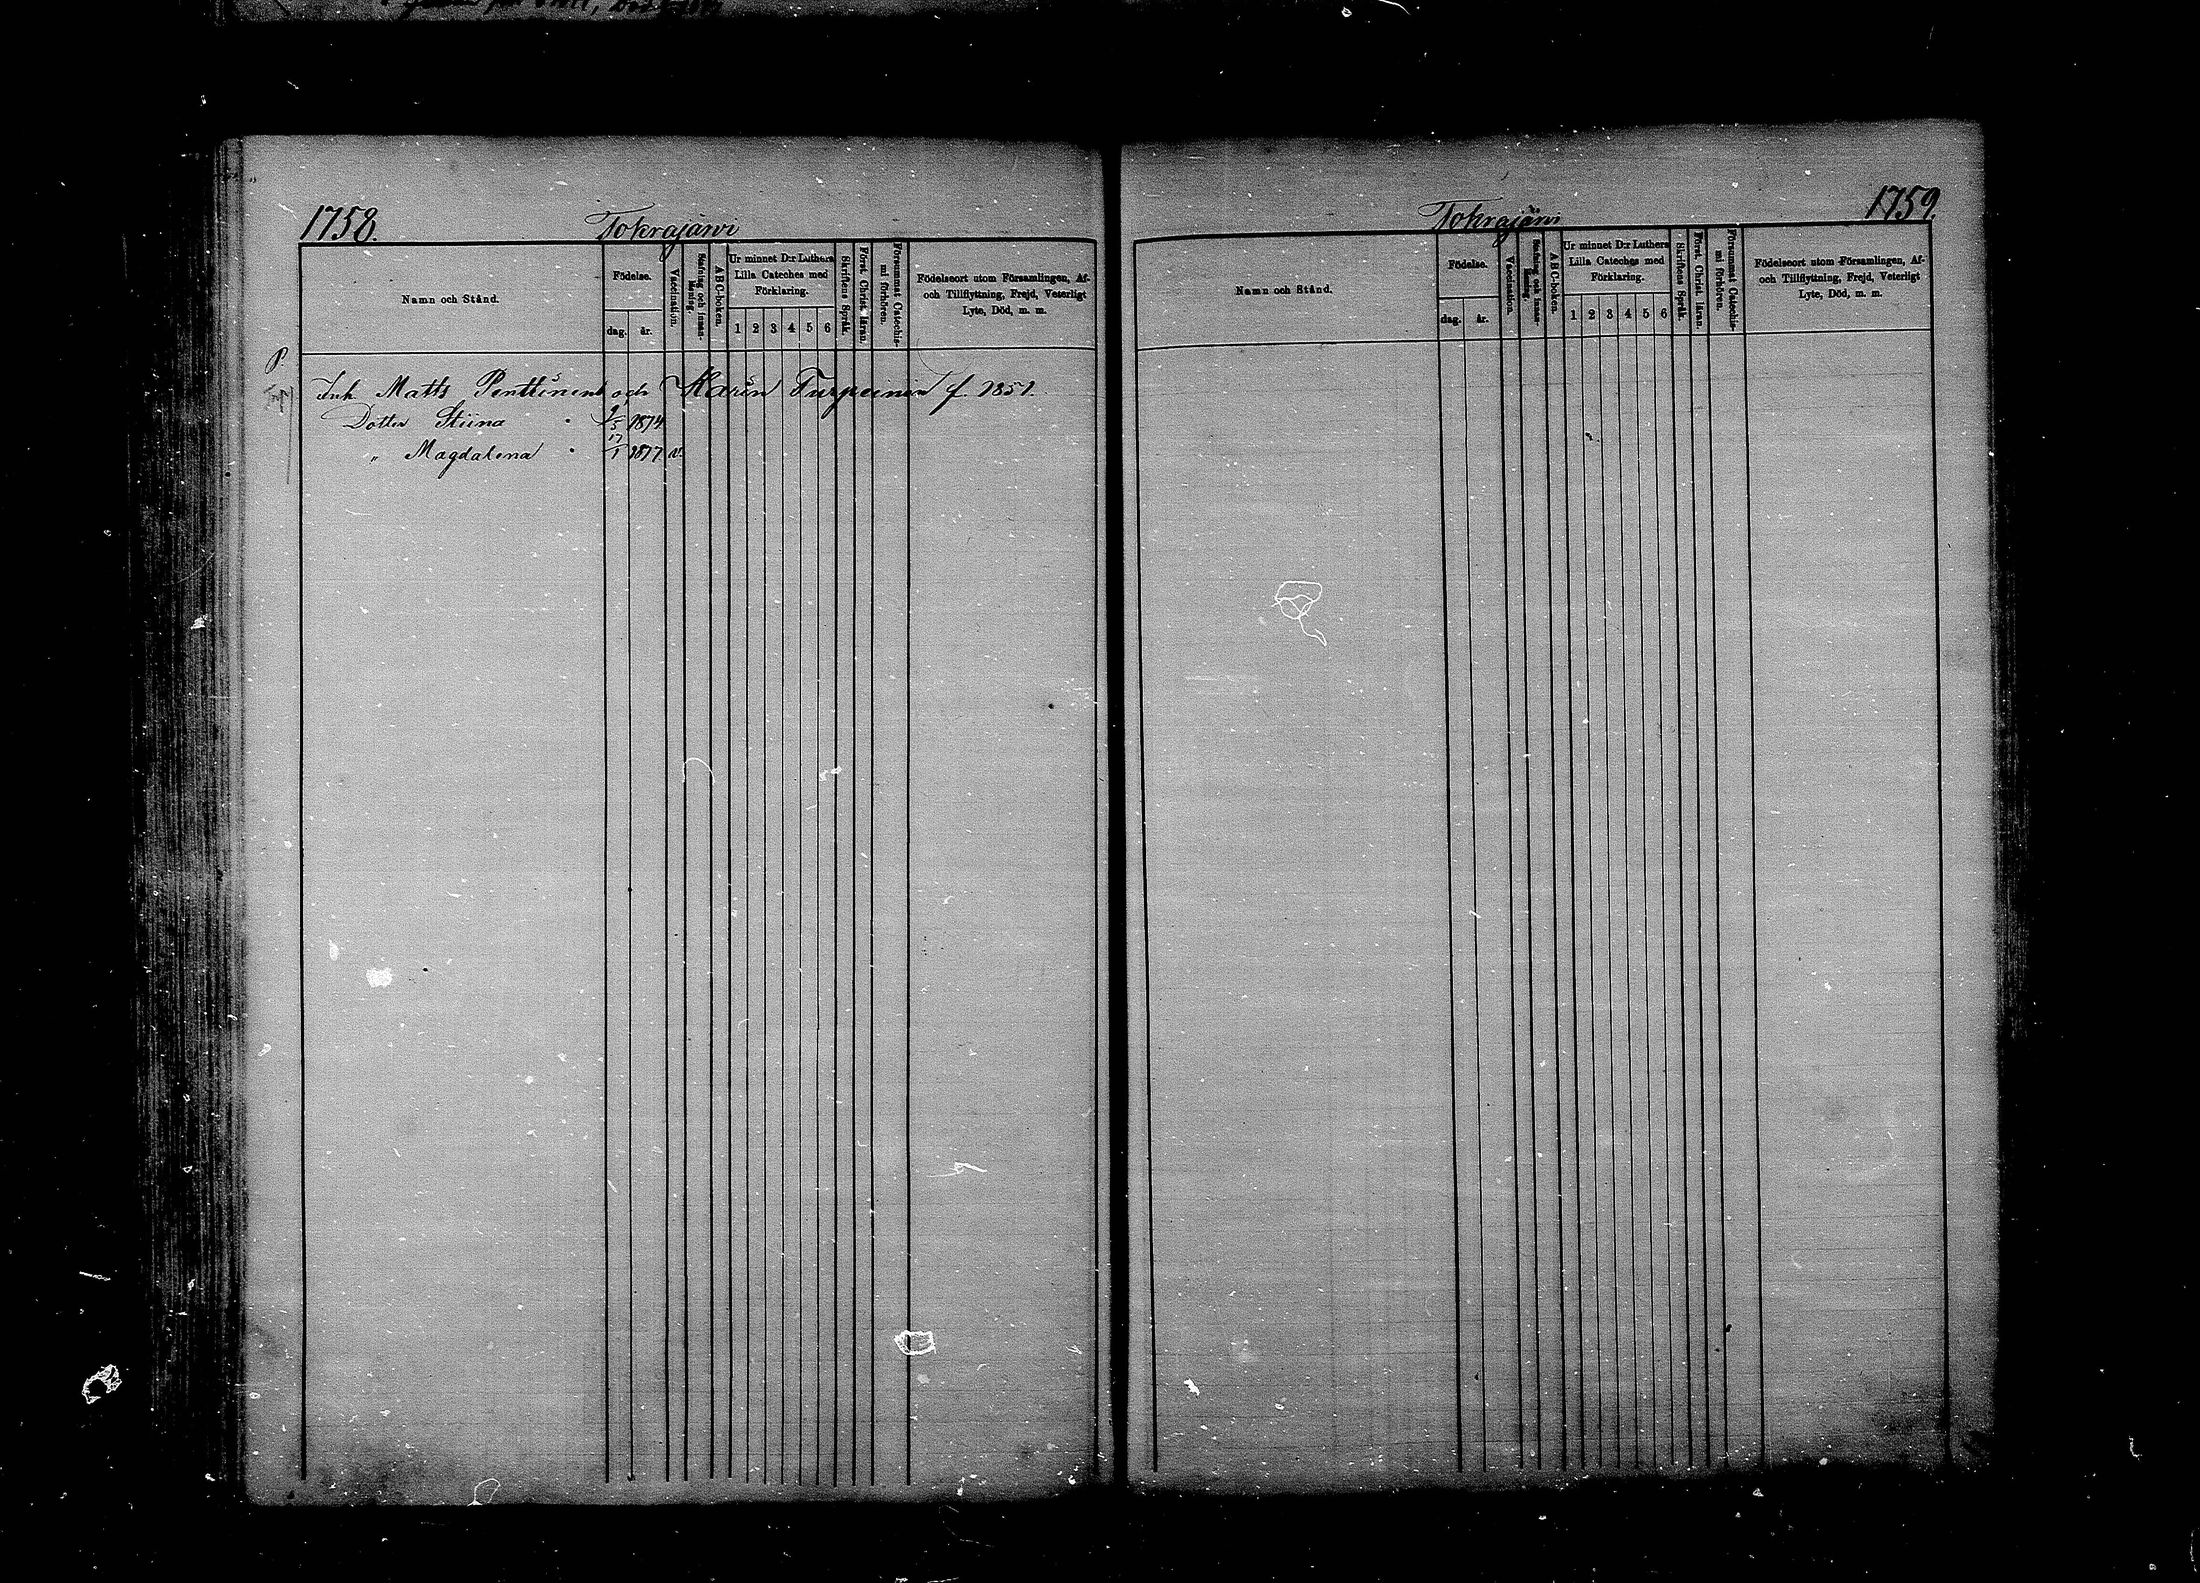 1758.
Tokrajärvi
Namn och Stånd.
Födelse.
dag.
år.
Vaccination.
Stafning och innan-
läsning.
ABC-boken.
Ur minnet D:r Luthers
Lilla Cateches med
Förklaring.
1 2 3 4 5 6
Skriftens Språk.
Först. Christ. läran.
Försummat Catechis-
mi förhören.
Födelseort utom Församlingen, Af-
och Tillflyttning, Frejd, Veterligt
Lyte, Död, m. m.
P.
Inh. Matts Penttinens och Karin Turpeinen f. 1851.
Dotter Stiina 9/5 1874
„ Magdalena 17/1 1877 v.
Tokrajärvi
1759.
Namn och Stånd.
Födelse.
dag.
år.
Vaccination.
Stafning och innan-
läsning.
ABC-boken.
Ur minnet D:r Luthers
Lilla Cateches med
Förklaring.
1 2 3 4 5 6
Skriftens Språk.
Först. Christ. läran.
Försummat Catechis-
mi förhören.
Födelseort utom Församlingen, Af-
och Tillflyttning, Frejd, Veterligt
Lyte, Död, m. m.